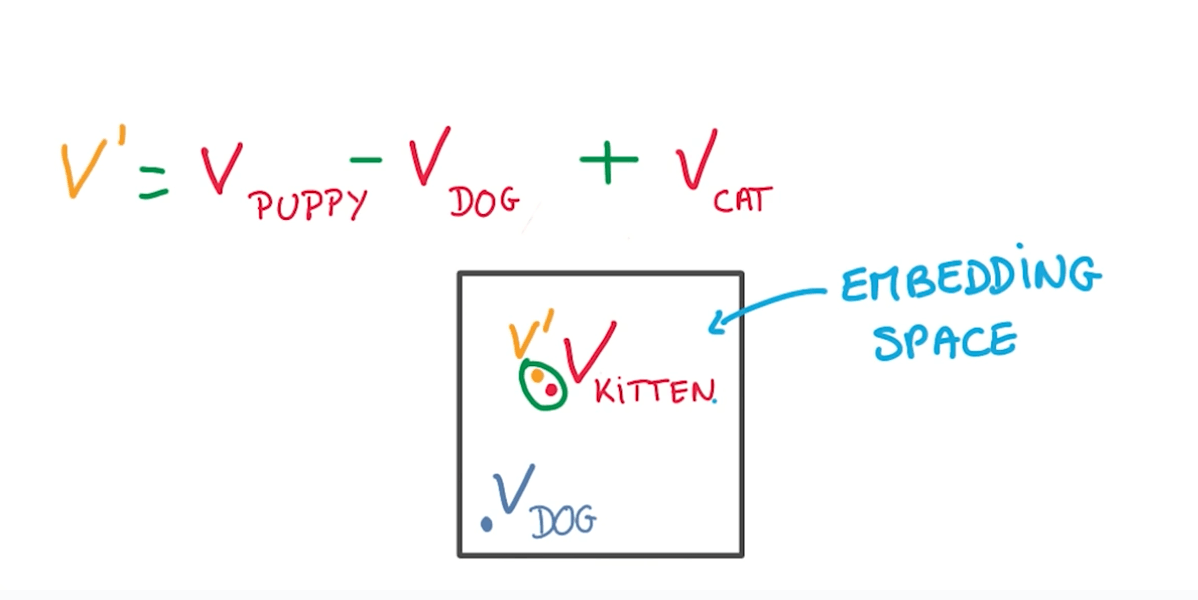 V' = V PUPPY - V DOG + V CAT
EMBEDDING
SPACE
V' V KITTEN.
V DOG